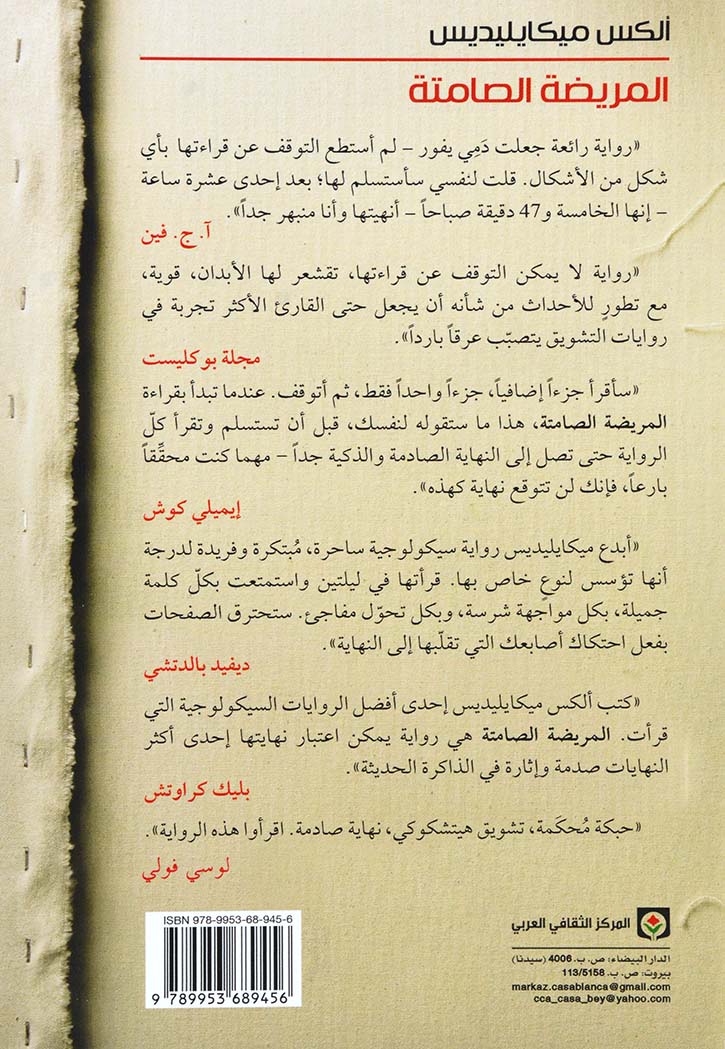 ألكس ميكايليديس
المريضة الصامتة
«رواية رائعة جعلت دَمِي يفور – لم أستطع التوقف عن قراءتها بأي
شكل من الأشكال. قلت لنفسي سأستسلم لها؛ بعد إحدى عشرة ساعة
– إنها الخامسة و47 دقيقة صباحاً – أنهيتها وأنا منبهر جداً».
آ. ج. فين
«رواية لا يمكن التوقف عن قراءتها، تقشعر لها الأبدان، قوية،
مع تطورٍ للأحداث من شأنه أن يجعل حتى القارئ الأكثر تجربة في
روايات التشويق يتصبّب عرقاً بارداً».
مجلة بوكليست
«سأقرأ جزءاً إضافياً، جزءاً واحداً فقط، ثم أتوقف. عندما تبدأ بقراءة
المريضة الصامتة، هذا ما ستقوله لنفسك، قبل أن تستسلم وتقرأ كلّ
الرواية حتى تصل إلى النهاية الصادمة والذكية جداً – مهما كنت محقِّقاً
بارعاً، فإنك لن تتوقع نهاية كهذه».
إيميلي كوش
«أبدع ميكايليديس رواية سيكولوجية ساحرة، مُبتكرة وفريدة لدرجة
أنها تؤسس لنوعٍ خاص بها. قرأتها في ليلتين واستمتعت بكلّ كلمة
جميلة، بكل مواجهة شرسة، وبكل تحوّل مفاجئ. ستحترق الصفحات
بفعل احتكاك أصابعك التي تقلّبها إلى النهاية».
ديفيد بالدتشي
«كتب ألكس ميكايليديس إحدى أفضل الروايات السيكولوجية التي
قرأت. المريضة الصامتة هي رواية يمكن اعتبار نهايتها إحدى أكثر
النهايات صدمة وإثارة في الذاكرة الحديثة».
بليك كراوتش
«حبكة مُحكَمة، تشويق هيتشكوكي، نهاية صادمة. اقرأوا هذه الرواية».
لوسي فولي
ISBN 978-9953-68-945-6
9 789953 689456
المركز الثقافي العربي
الدار البيضاء: ص. ب. 4006 (سيدنا)
بيروت: ص. ب. 113/5158
markaz.casablanca@gmail.com
cca_casa_bey@yahoo.com